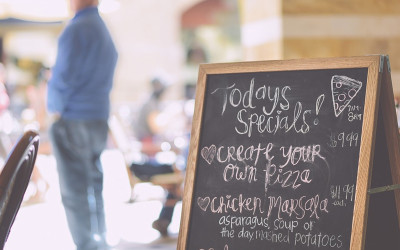 Todays
Specials!
7in
8in
$9.99
Create Your
Own Pizza
$11.99
Chicken Marsala
asparagus, soup of
the day, mashed potatoes